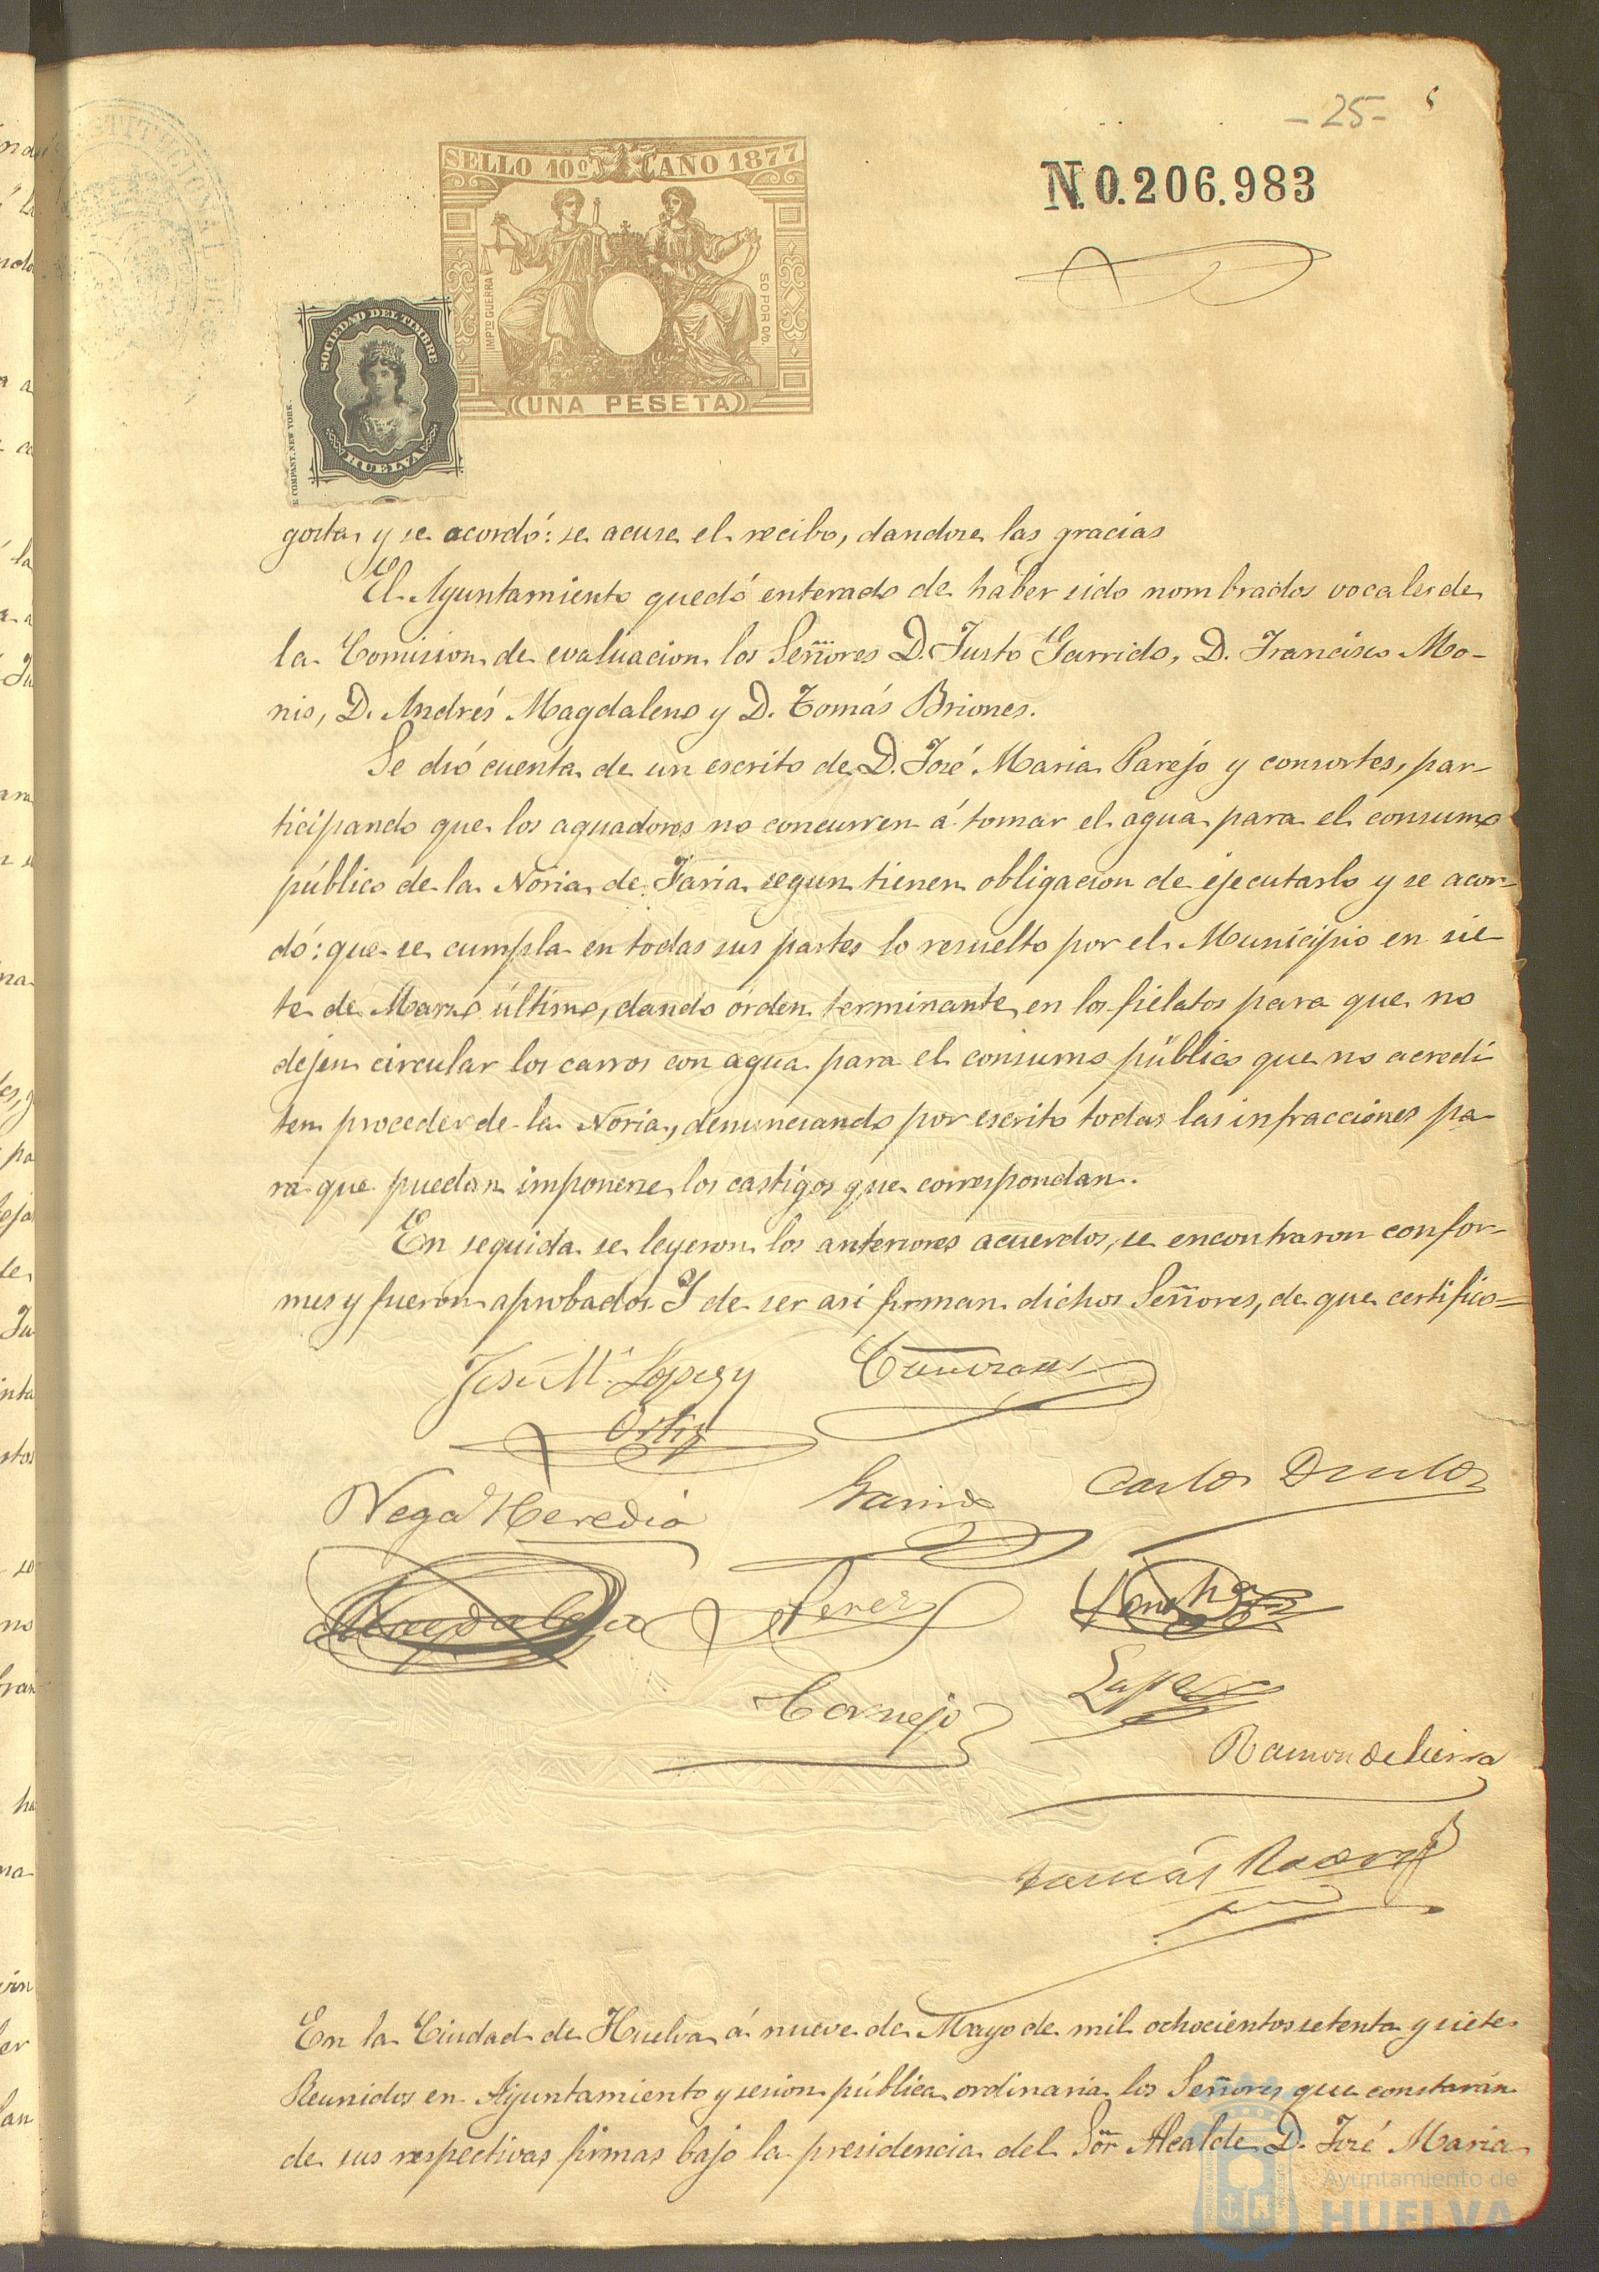 - 25 -
SELLO 10º AÑO 1877
N.0.206.983
IMPTO GUERRA
50 POR 0/0
SOCIEDAD DEL TIMBRE
HUELVA
UNA PESETA
COMPANY. NEW YORK.
gosta, y se acordó: se acuse el recibo, dandose las gracias
El Ayuntamiento quedó enterado de haber sido nombrados vocales de
la Comision de evaluacion los Señores D. Justo Garrido, D. Francisco Mo-
nis, D. Andrés Magdaleno y D. Tomás Briones.
Se dió cuenta de un escrito de D. José Maria Parejo y consortes, par-
ticipando que los aguadores no concurren á tomar el agua para el consumo
público de la Noria de Faria segun tienen obligacion de ejecutarlo y se acor-
dó: que se cumpla en todas sus partes lo resuelto por el Municipio en sie
te de Marzo último, dando órden terminante en los fielatos para que no
dejen circular los carros con agua para el consumo público que no acredi
ten proceder de la Noria, denunciando por escrito todas las infracciones pa
ra que puedan imponerse los castigos que correspondan.
En seguida se leyeron los anteriores acuerdos, se encontraron confor-
mes y fueron aprobados. Y de ser asi firman dichos Señores, de que certifico=
José Mª Lopez y
Ortiz
Vega Heredia
Garrido
Carlos
Perez
Cornejo
Lopez
Ramon de Sierra
Tomás
AÑO 1877
En la Ciudad de Huelva á nueve de Mayo de mil ochocientos setenta y siete
Reunidos en Ayuntamiento y sesion pública ordinaria los Señores que constarán
de sus respectivas firmas bajo la presidencia del Sor Alcalde D. José Maria
Ayuntamiento de
HUELVA